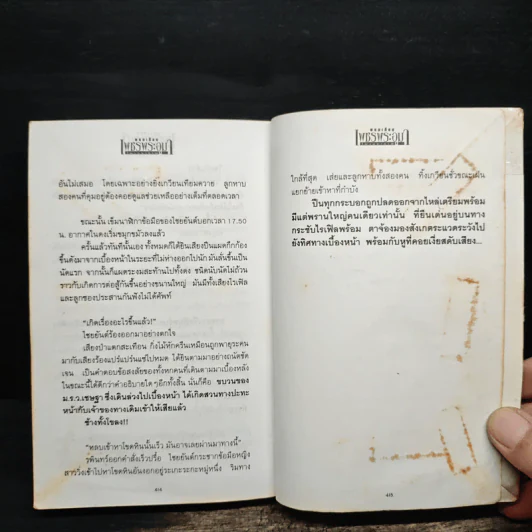 พนมเทียน
เพชรพระอุมา
อันไม่เสมอ โดยเฉพาะอย่างยิ่งเกวียนเทียมควาย ลูกหาบ
สองคนที่คุมอยู่ต้องคอยดูแลช่วยเหลืออย่างเต็มที่ตลอดเวลา
ขณะนั้น เข็มนาฬิกาข้อมือของไชยยันต์บอกเวลา 17.50
น. อากาศในดงเริ่มขมุกขมัวลงแล้ว
ครั้นแล้วทันทีนั้นเอง ทั้งหมดก็ได้ยินเสียงปืนแผดกึกก้อง
ขึ้นดังมาจากเบื้องหน้าในระยะที่ไม่ห่างออกไปนัก มันลั่นขึ้นเป็น
นัดแรก จากนั้นก็แผดระงมสะท้านไปทั้งดง ชนิดนับนัดไม่ถ้วน
ราวกับเกิดการต่อสู้กันขึ้นอย่างขนานใหญ่ มันมีทั้งเสียงไรเฟิล
และลูกซองประสานกันฟังไม่ได้ศัพท์
"เกิดเรื่องอะไรขึ้นแล้ว!"
ไชยยันต์ร้องออกมาอย่างตกใจ
เสียงป่าแตกสะเทือน กิ่งไม้หักครืนเหมือนถูกพายุระคน
มากับเสียงร้องแปร๋นแปร๋นแซ่ไปหมด ได้ยินตามมาอย่างถนัดชัด
เจน เป็นคำตอบข้อสงสัยของทั้งหมดที่เดินตามมาเบื้องหลัง
ในขณะนี้ได้ดีกว่าคำอธิบายใดๆอีกทั้งสิ้น นั่นก็คือ ขบวนของ
ม.ร.ว.เชษฐา ซึ่งเดินล่วงไปเบื้องหน้า ได้เกิดสวนทางปะทะ
หน้ากับเจ้าของทางเดิมเข้าให้เสียแล้ว
ช้างทั้งโขลง!!
"หลบเข้าหาโขดหินนั้นเร็ว มันอาจเลยผ่านมาทางนี้"
รพินทร์ออกคำสั่งเร็วปรื๋อ ไชยยันต์กระชากข้อมือหญิง
สาววิ่งเข้าไปหาโขดหินอันงอกอยู่ระเกะระกะหมู่หนึ่ง ริมทาง
414
พนมเทียน
เพชรพระอุมา
ใกล้ที่สุด เส่ยและลูกหาบทั้งสองคน ทิ้งเกวียนชั่วขณะเผ่น
แยกย้ายเข้าหาที่กำบัง
ปืนทุกกระบอกถูกปลดออกจากไหล่เตรียมพร้อม
มีแต่พรานใหญ่คนเดียวเท่านั้น ที่ยืนเด่นอยู่บนทาง
กระชับไรเฟิลพร้อม ตาจ้องมองสังเกตระแวดระวังไป
ยังทิศทางเบื้องหน้า พร้อมกับหูที่คอยเงี่ยสดับเสียง...
415